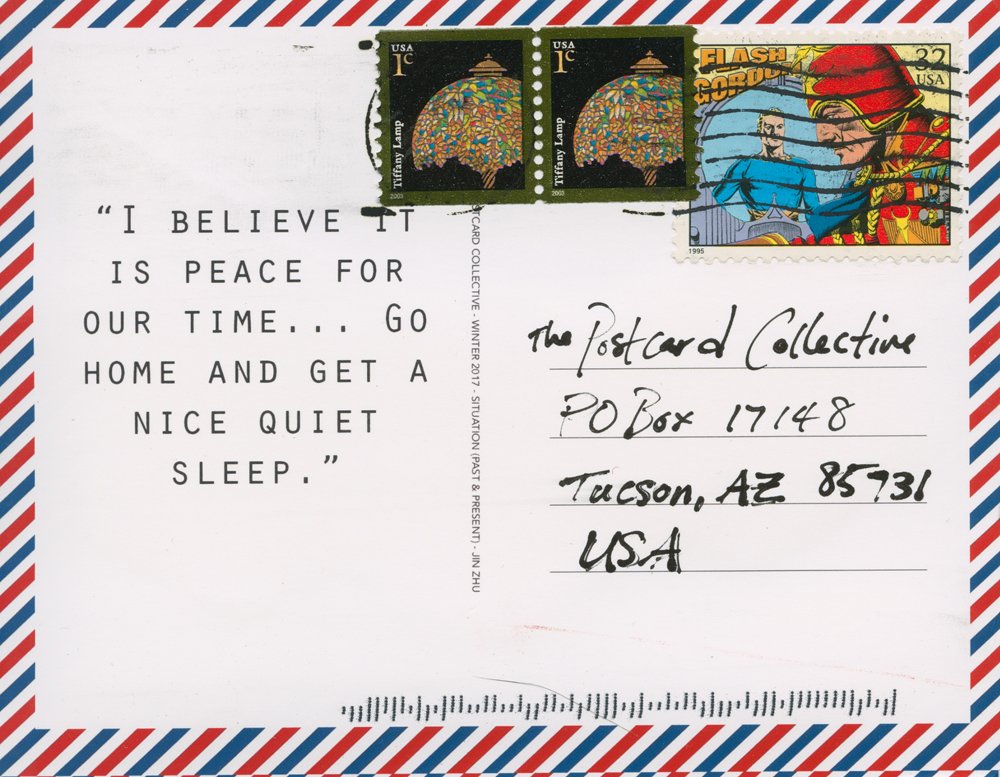 USA
1c
Tiffany Lamp
2003
USA
1c
Tiffany Lamp
2003
FLASH
GORDON
32
USA
1995
“I BELIEVE IT
IS PEACE FOR
OUR TIME... GO
HOME AND GET A
NICE QUIET
SLEEP.”
CARD COLLECTIVE - WINTER 2017 - SITUATION (PAST & PRESENT) - JIN ZHU
The Postcard Collective
PO Box 17148
Tucson, AZ 85731
USA